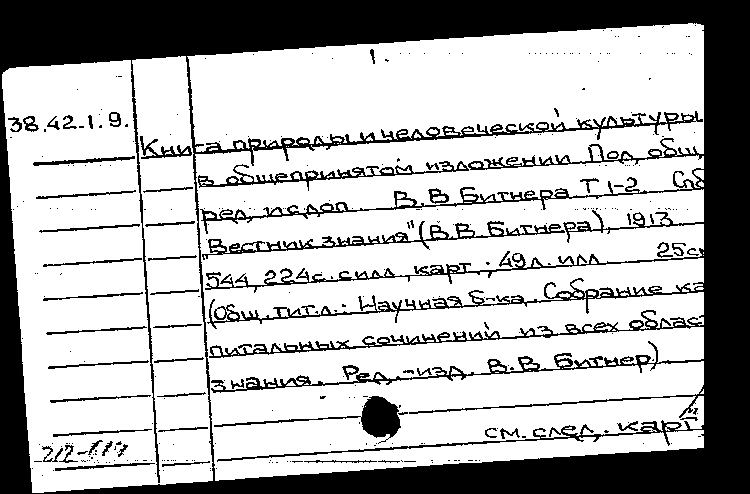 1.
38.42.1.9.
Книга природы и человеческой культуры
в общепринятом изложении Под общ.
ред. и с доп. В.В Битнера Т. 1-2. Спб
"Вестник знания" (В.В. Битнера), 1913
544, 224с. с илл, карт.; 49л. илл 25см
(Общ. тит.л.: Научная б-ка. Собрание ка
питальных сочинений из всех област
знания. Ред.-изд. В.В Битнер)
см. след. карт.